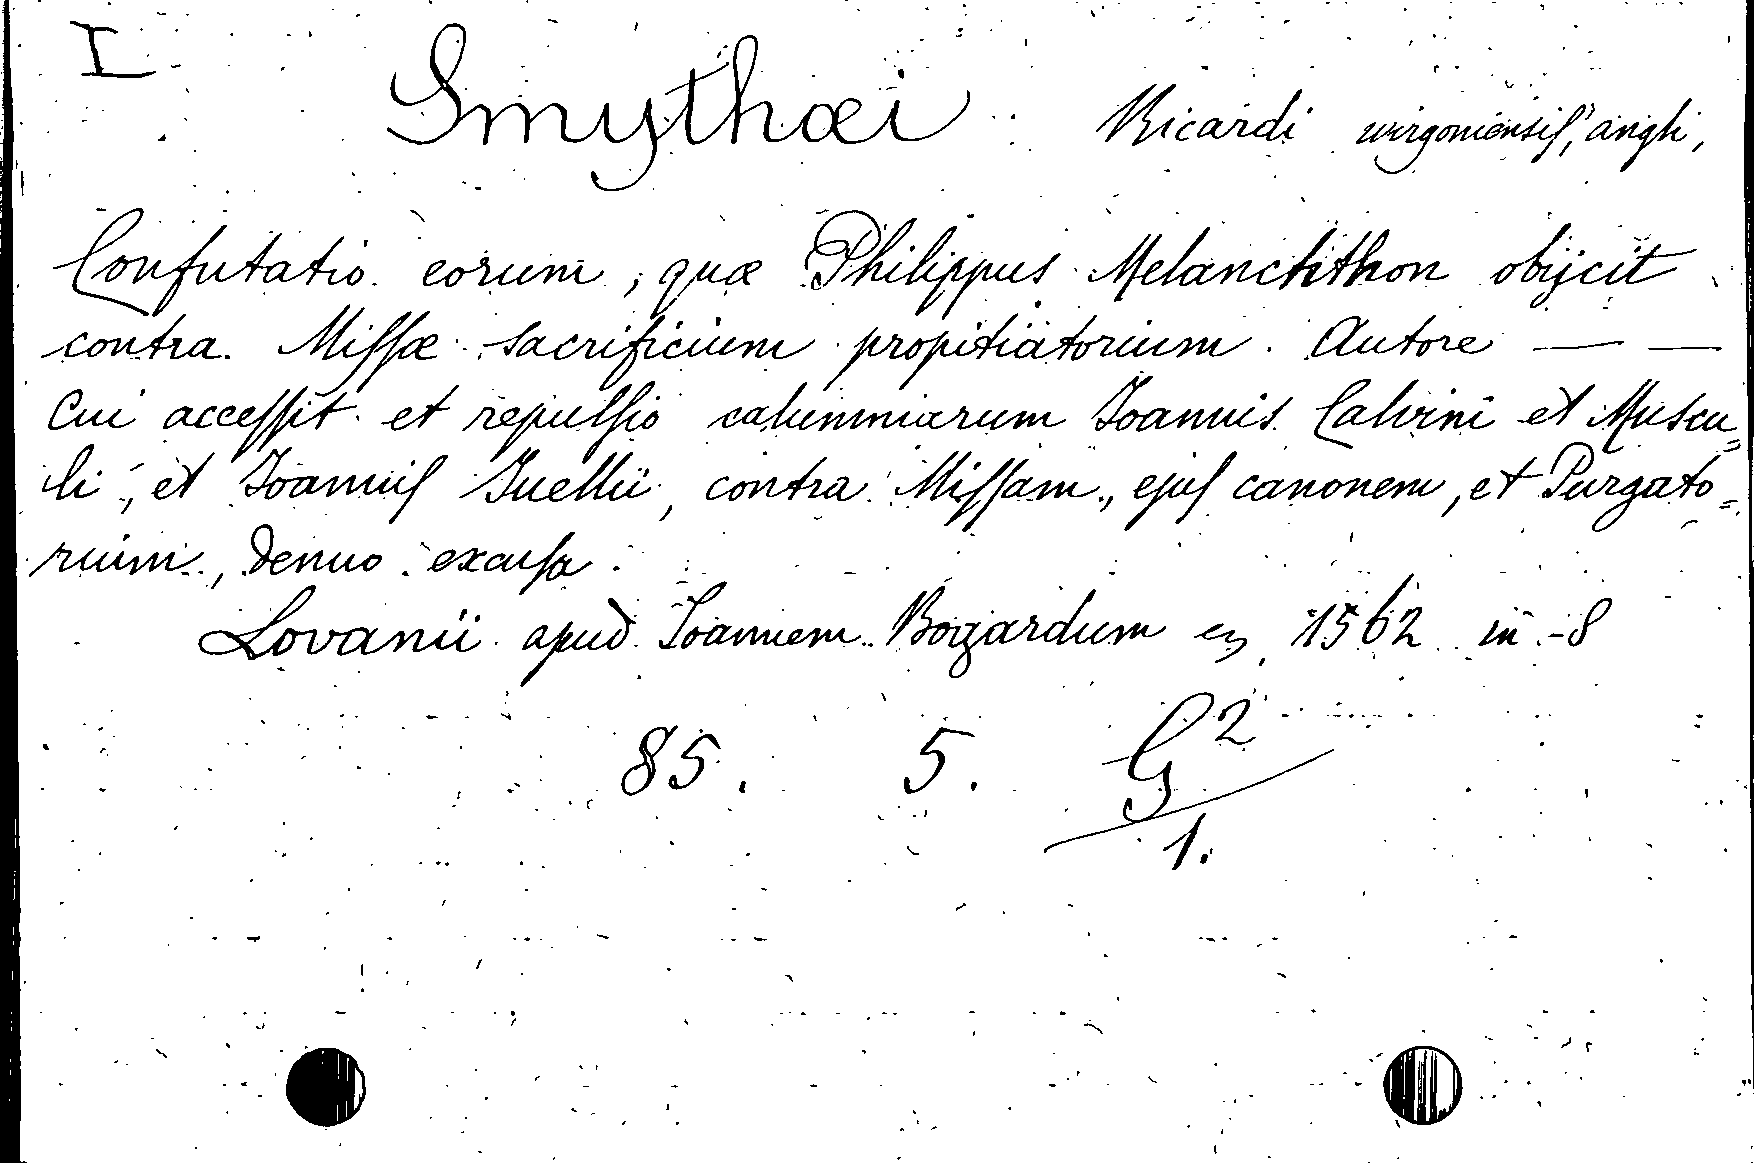 I
Smythæi Ricardi wirgoniensis, angli,
Confutatio eorum, quæ Philippus Melanchthon obijcit
contra Missæ sacrificium propitiatorium. Autore — —
Cui accessit et repulsio calumniarum Ioannis Calvini et Muscu=
li, et Ioannis Iuellii, contra Missam, ejus canonem, et Purgato=
rium, denuo excusa.
Lovanii apud Ioannem Bogardum 1562 in-8
85. 5. G²/1.